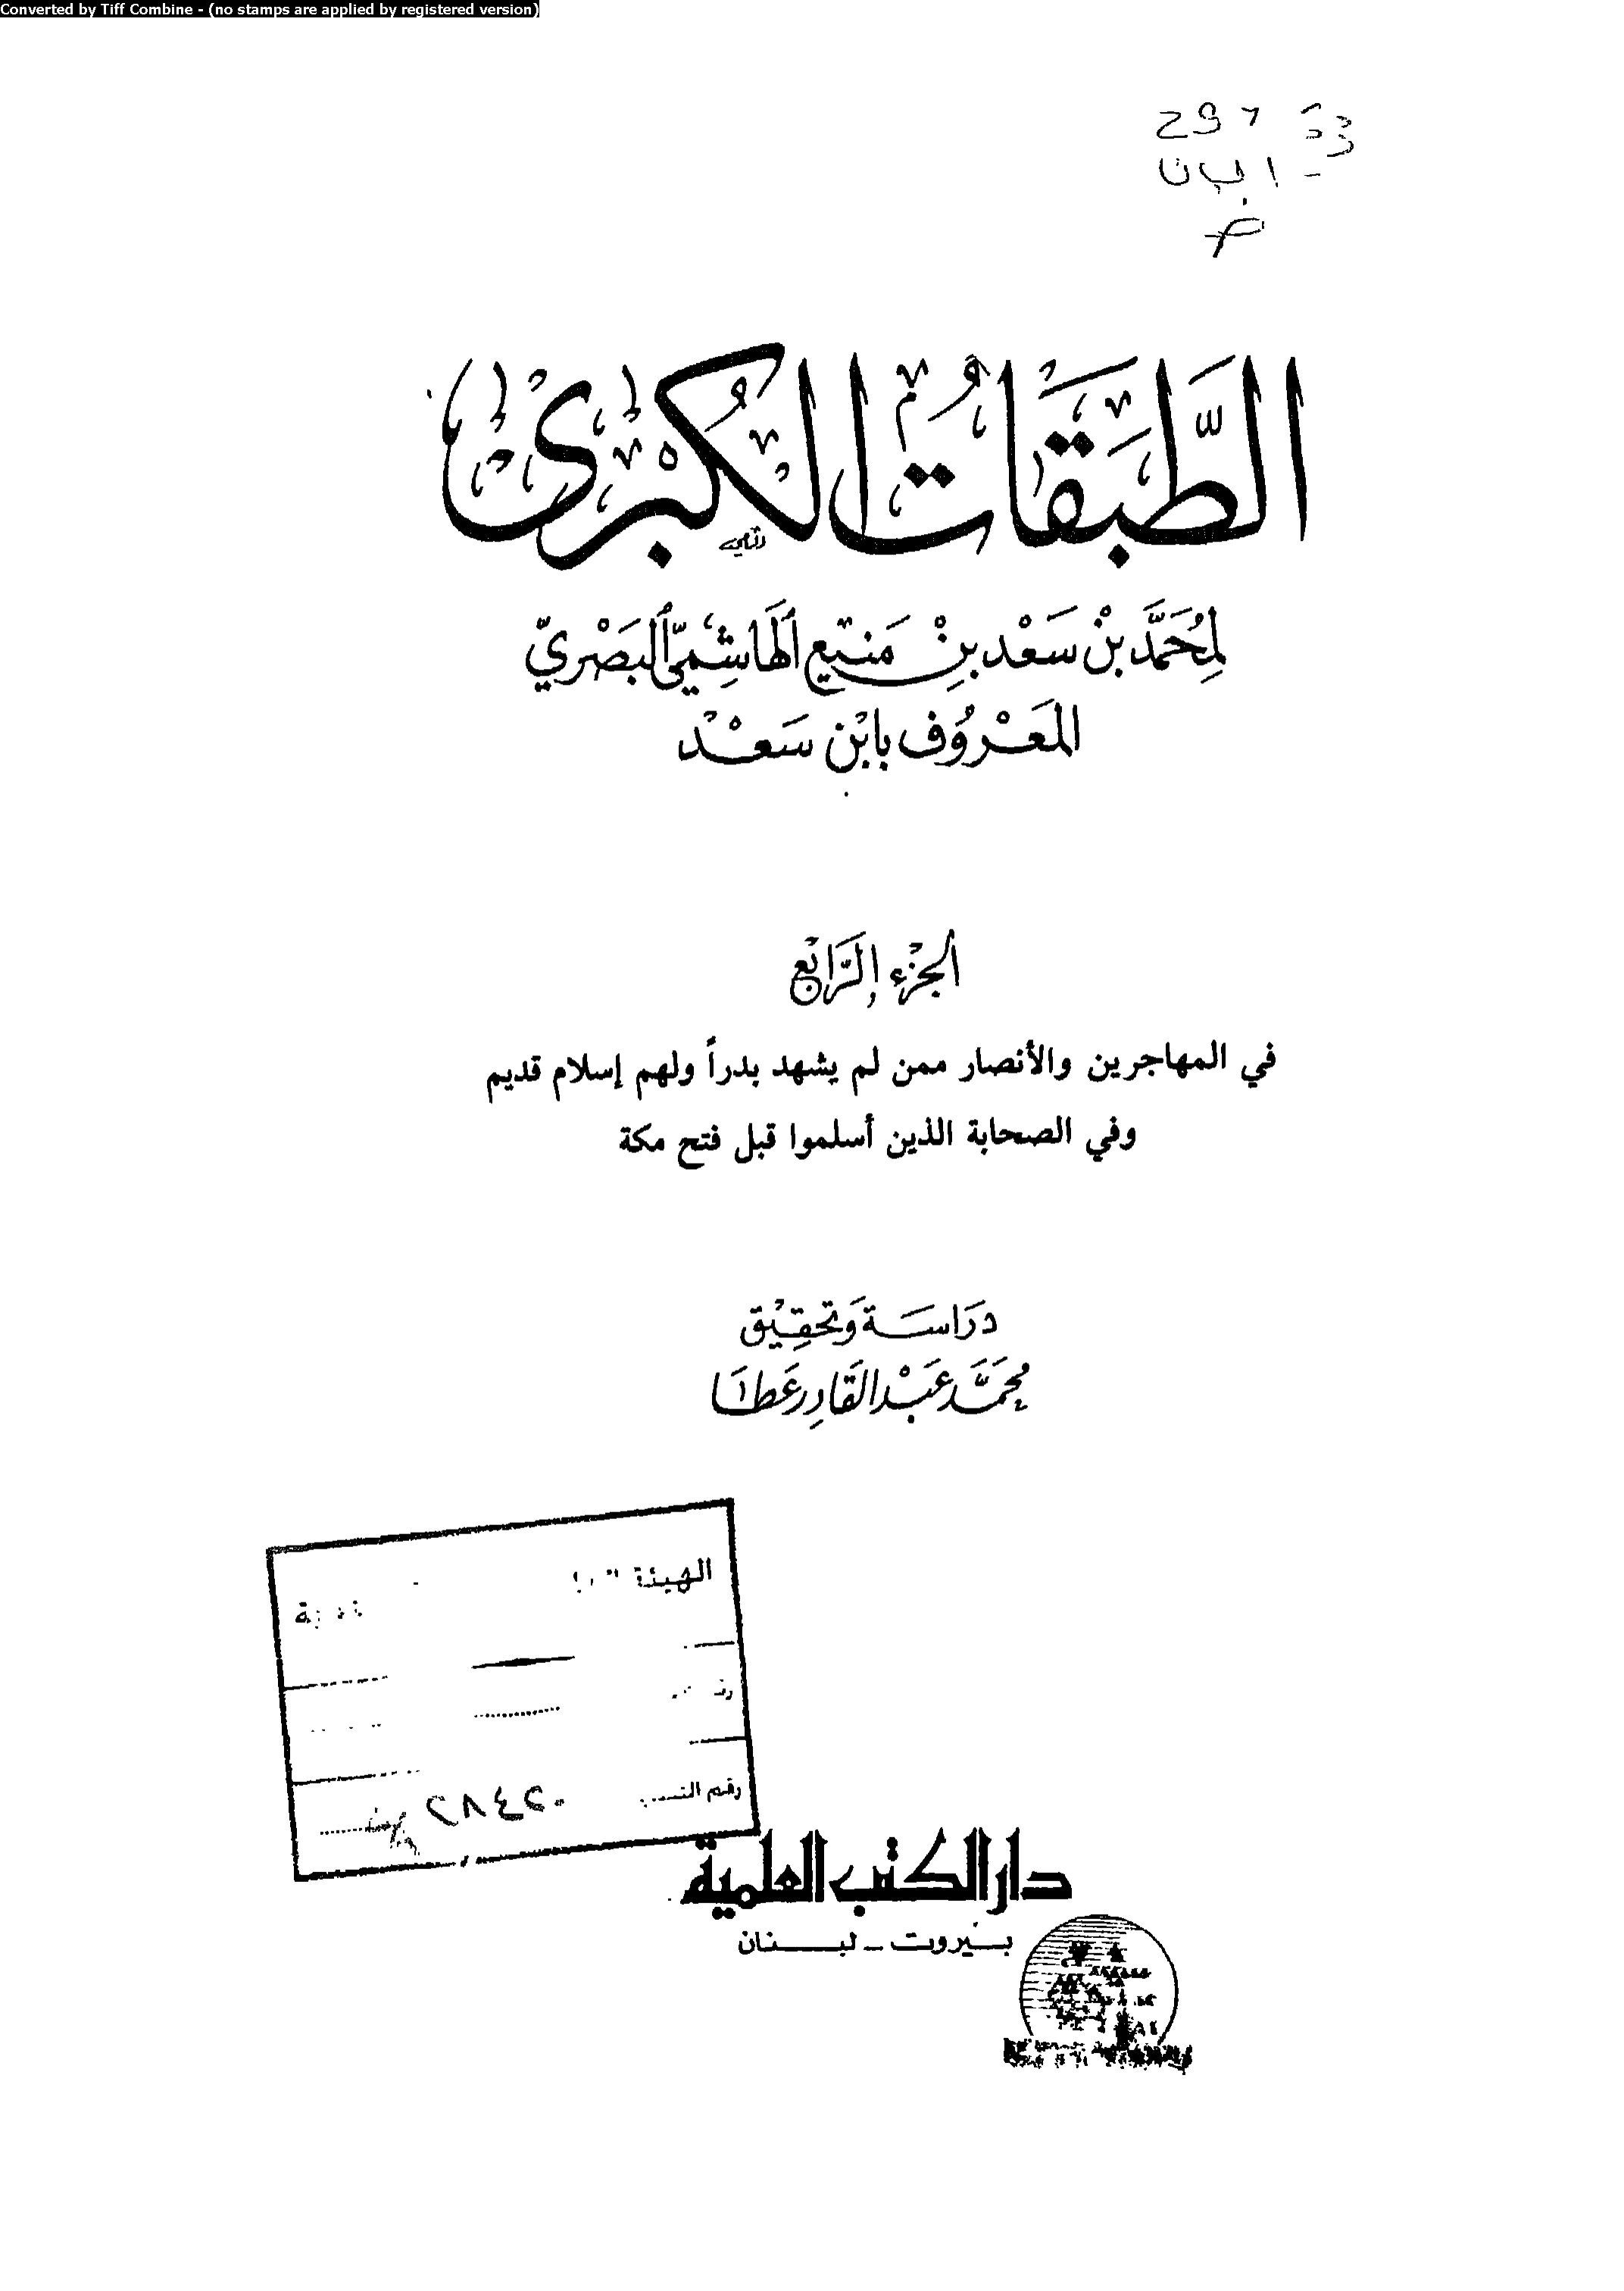 Converted by Tiff Combine - (no stamps are applied by registered version)
الطَّبَقَاتُ الكُبْرَى
لِمُحَمَّد بْن سَعْد بِنْ مَنيع الهَاشِميّ البَصْريّ
المَعْرُوف بابْن سَعْد
الجُزء الرَّابع
في المهاجرين والأنصار ممن لم يشهد بدراً ولهم إسلام قديم
وفي الصحابة الذين أسلموا قبل فتح مكة
دَرَاسَة وَتحقِيْق
محمَّد عَبْد القَادِر عَطَا
الهيئة
رقم
٠٢٤٨٢
دار الكتب العلمية
بيروت - لبنان